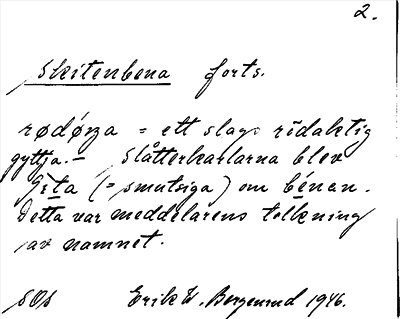 2.
Skitenbena forts.
rødǿza = ett slags rīdaktig
gyttja. – Slåtterkarlarna blev
(= smutsiga) om bénan.
Detta var meddelarens tolkning
av namnet.
SOb Erik W. Bergensund 1946.